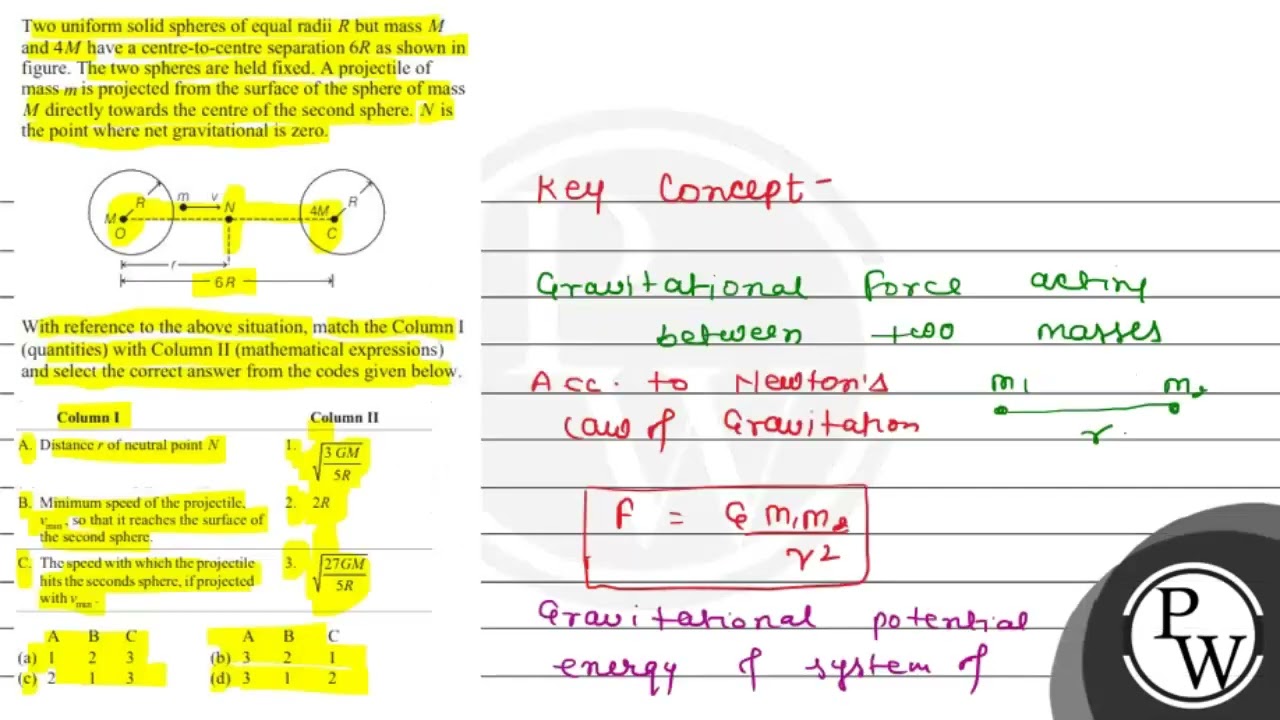 Two uniform solid spheres of equal radii R but mass M
and 4M have a centre-to-centre separation 6R as shown in
figure. The two spheres are held fixed. A projectile of
mass m is projected from the surface of the sphere of mass
M directly towards the centre of the second sphere. N is
the point where net gravitational is zero.
R m v N 4M R
M O C
r
6R
With reference to the above situation, match the Column I
(quantities) with Column II (mathematical expressions)
and select the correct answer from the codes given below.
Column I Column II
A. Distance r of neutral point N 1. √(3 GM/5R)
B. Minimum speed of the projectile, 2. 2R
vmin, so that it reaches the surface of
the second sphere.
C. The speed with which the projectile 3. √(27GM/5R)
hits the seconds sphere, if projected
with vmin.
A B C A B C
(a) 1 2 3 (b) 3 2 1
(c) 2 1 3 (d) 3 1 2
Key Concept -
Gravitational Force acting
between two masses
Acc. to Newton's
Law of Gravitation
m1 m2
r
F = G m1m2
r2
Gravitational potential
energy of system of
PW
PW